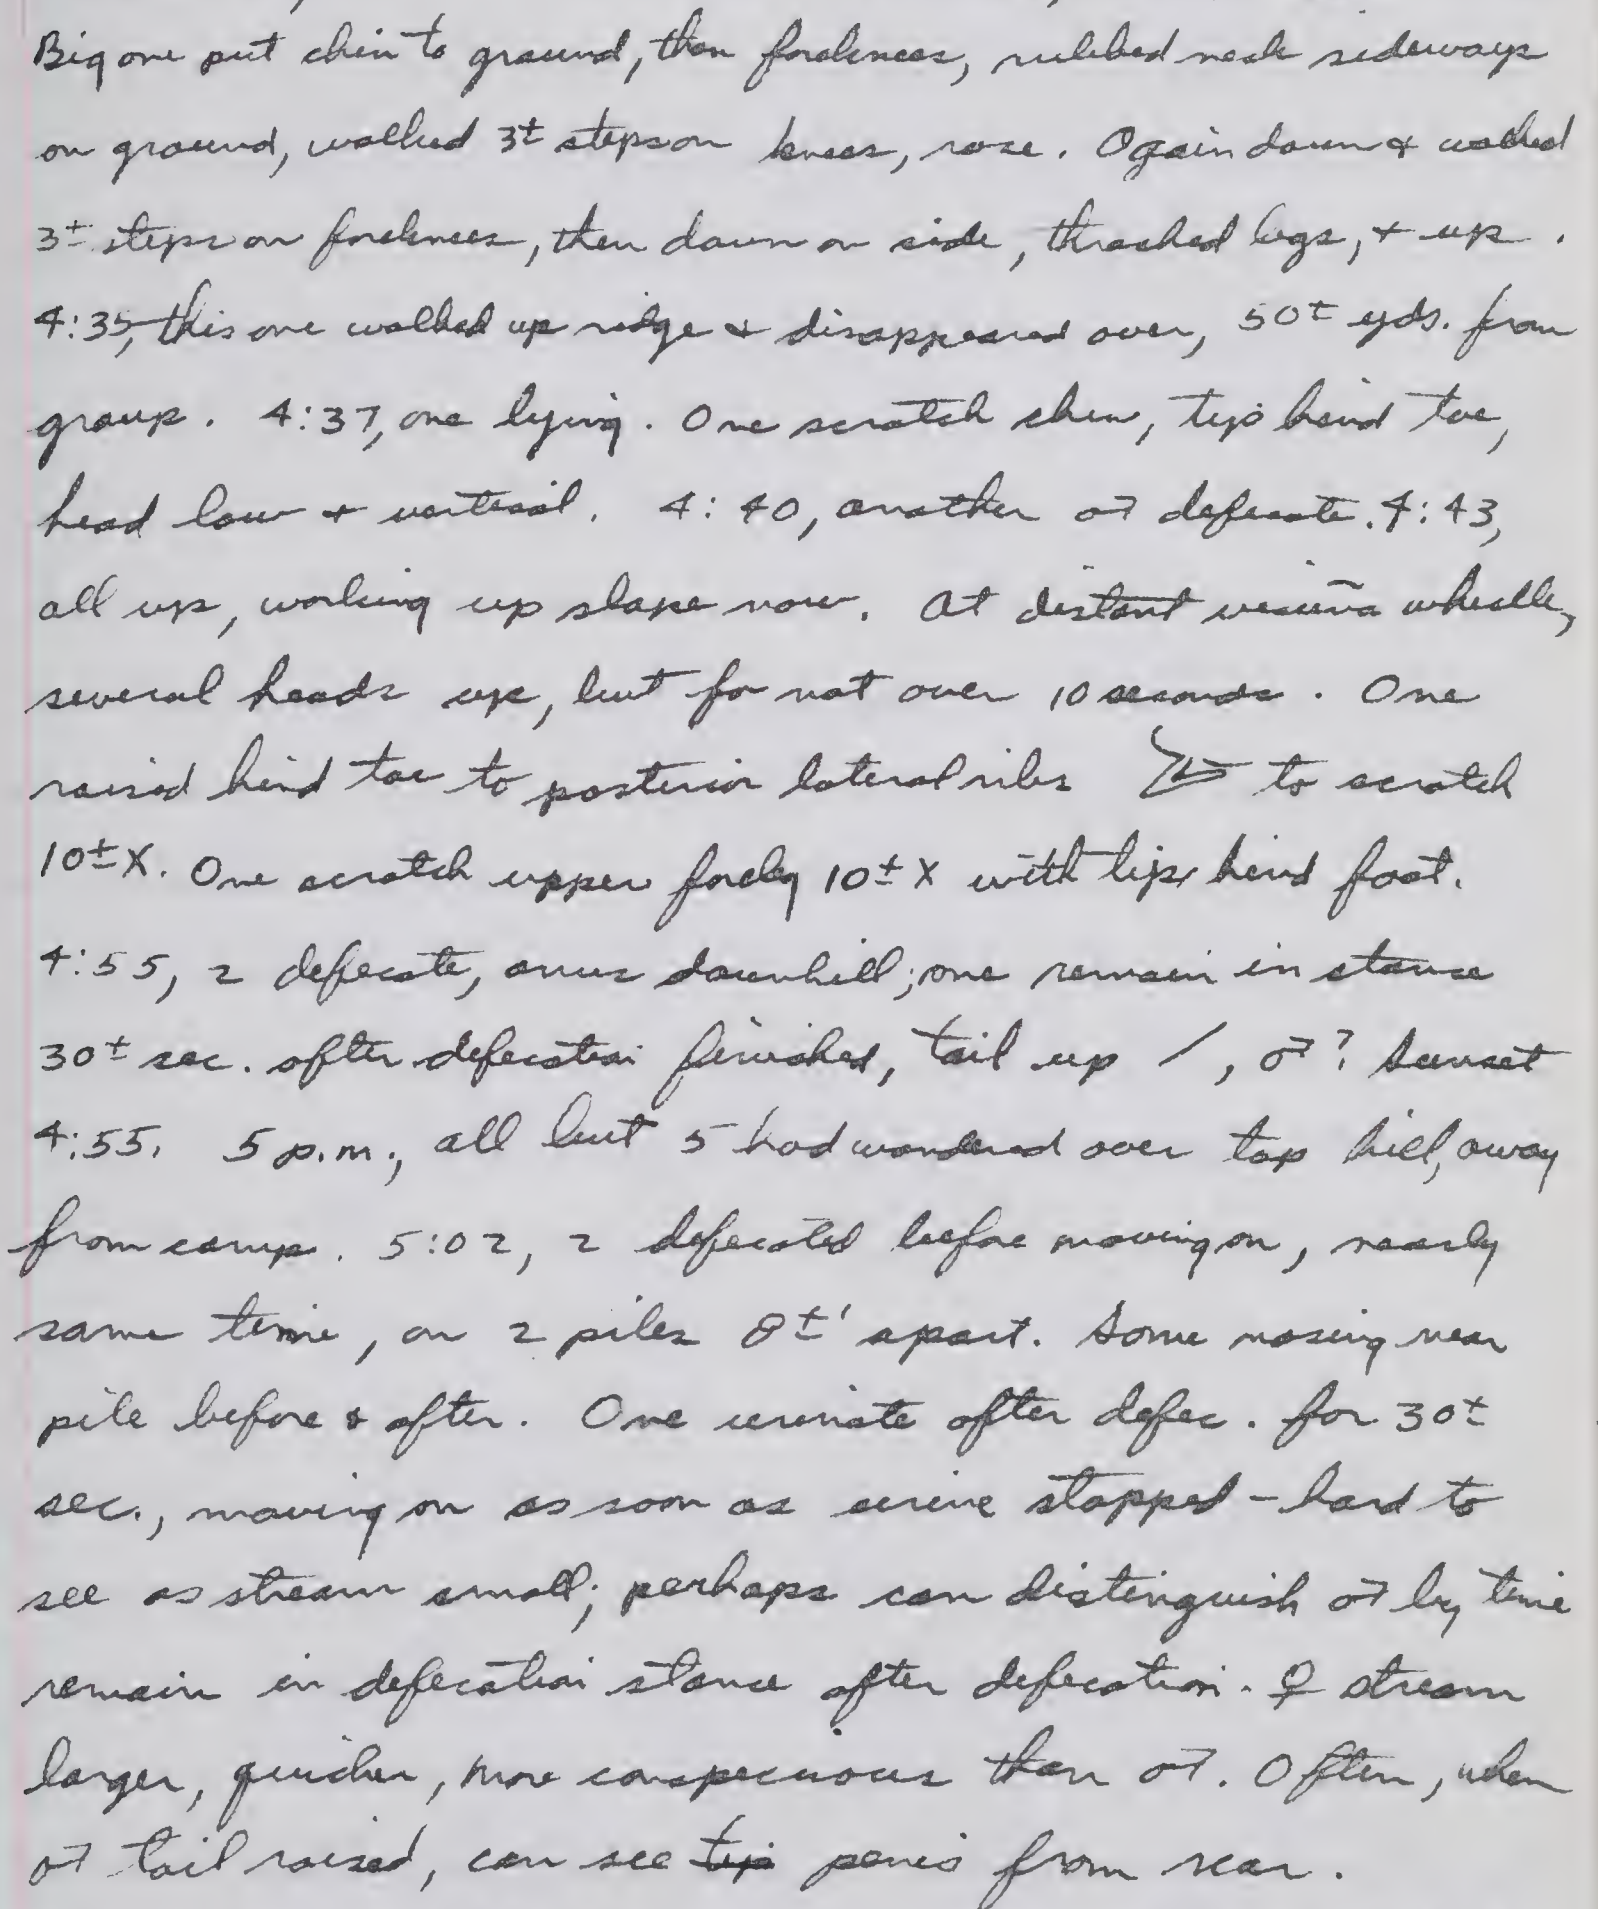 Big one put chin to ground, then foreknees, rubbed neck sideways
on ground, walked 3± steps on knees, rose. Again down & walked
3± steps on foreknees, then down on side, thrashed legs, & up.
4:35, this one walked up ridge & disappeared over, 50± yds. from
group. 4:37, one lying. One scratch chin, tip hind toe,
head low & vertical. 4:40, another ♂ defecate. 4:43,
all up, working up slope now. At distant vicuña whistle,
several heads up, but for not over 10 seconds. One
raised hind toe to posterior lateral ribs to scratch
10± X. One scratch upper foreleg 10± X with tip hind foot.
4:55, 2 defecate, anus downhill; one remain in stance
30± sec. after defecation finished, tail up /, ♂? Sunset
4:55. 5 p.m., all but 5 had wandered over top hill, away
from camp. 5:02, 2 defecated before moving on, nearly
same time, on 2 piles 8±' apart. Some nosing near
pile before & after. One urinate after defec. for 30±
sec., moving on as soon as urine stopped - hard to
see as stream small; perhaps can distinguish ♂ by time
remain in defecation stance after defecation. ♀ stream
larger, quicker, more conspicuous than ♂. Often, when
♂ tail raised, can see tip penis from rear.